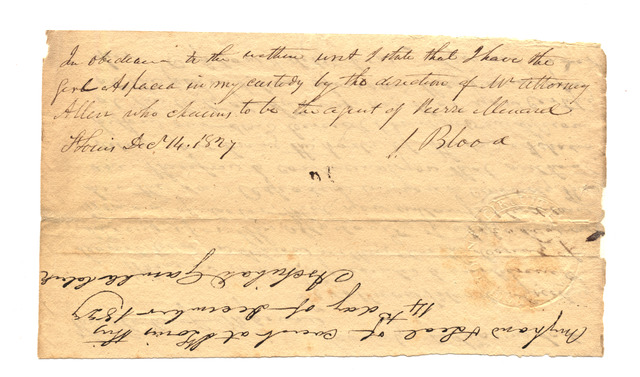 In obedience to the within writ I state that I have the
girl Aspacia in my custody by the direction of Mr Attorney
Allen who claims to be the agent of Pierre Menard
St Louis Dec. 14. 1827
Blood
my hand & Seal of court at St Louis this
14th day of December 1827
Archibald Gamble Clerk